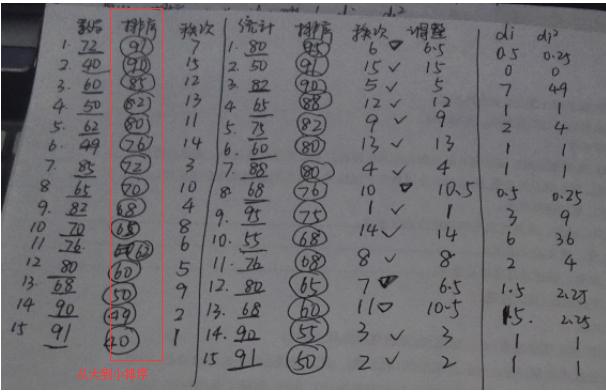 数学 排序 秩次 统计 排序 秩次 调整 di di²
1. 72 91 7 1. 80 95 6 6.5 0.5 0.25
2. 40 90 15 2. 50 91 15 ✓ 15 0 0
3. 60 85 12 3. 82 90 5 ✓ 5 7 49
4. 50 82 13 4. 65 88 12 ✓ 12 1 1
5. 62 80 11 5. 75 82 9 ✓ 9 2 4
6. 49 76 14 6. 60 80 13 ✓ 13 1 1
7. 85 72 3 7. 88 80 4 ✓ 4 1 1
8 65 70 10 8. 68 76 10 10.5 0.5 0.25
9. 82 68 4 9. 95 75 1 ✓ 1 3 9
10 70 65 8 10. 55 68 14 ✓ 14 6 36
11 76 62 6 11. 76 68 8 ✓ 8 2 4
12 80 60 5 12. 80 65 7 6.5 1.5 2.25
13. 68 50 9 13. 68 60 11 10.5 1.5 2.25
14 90 49 2 14. 90 55 3 ✓ 3 1 1
15 91 40 1 15 91 50 2 ✓ 2 1 1